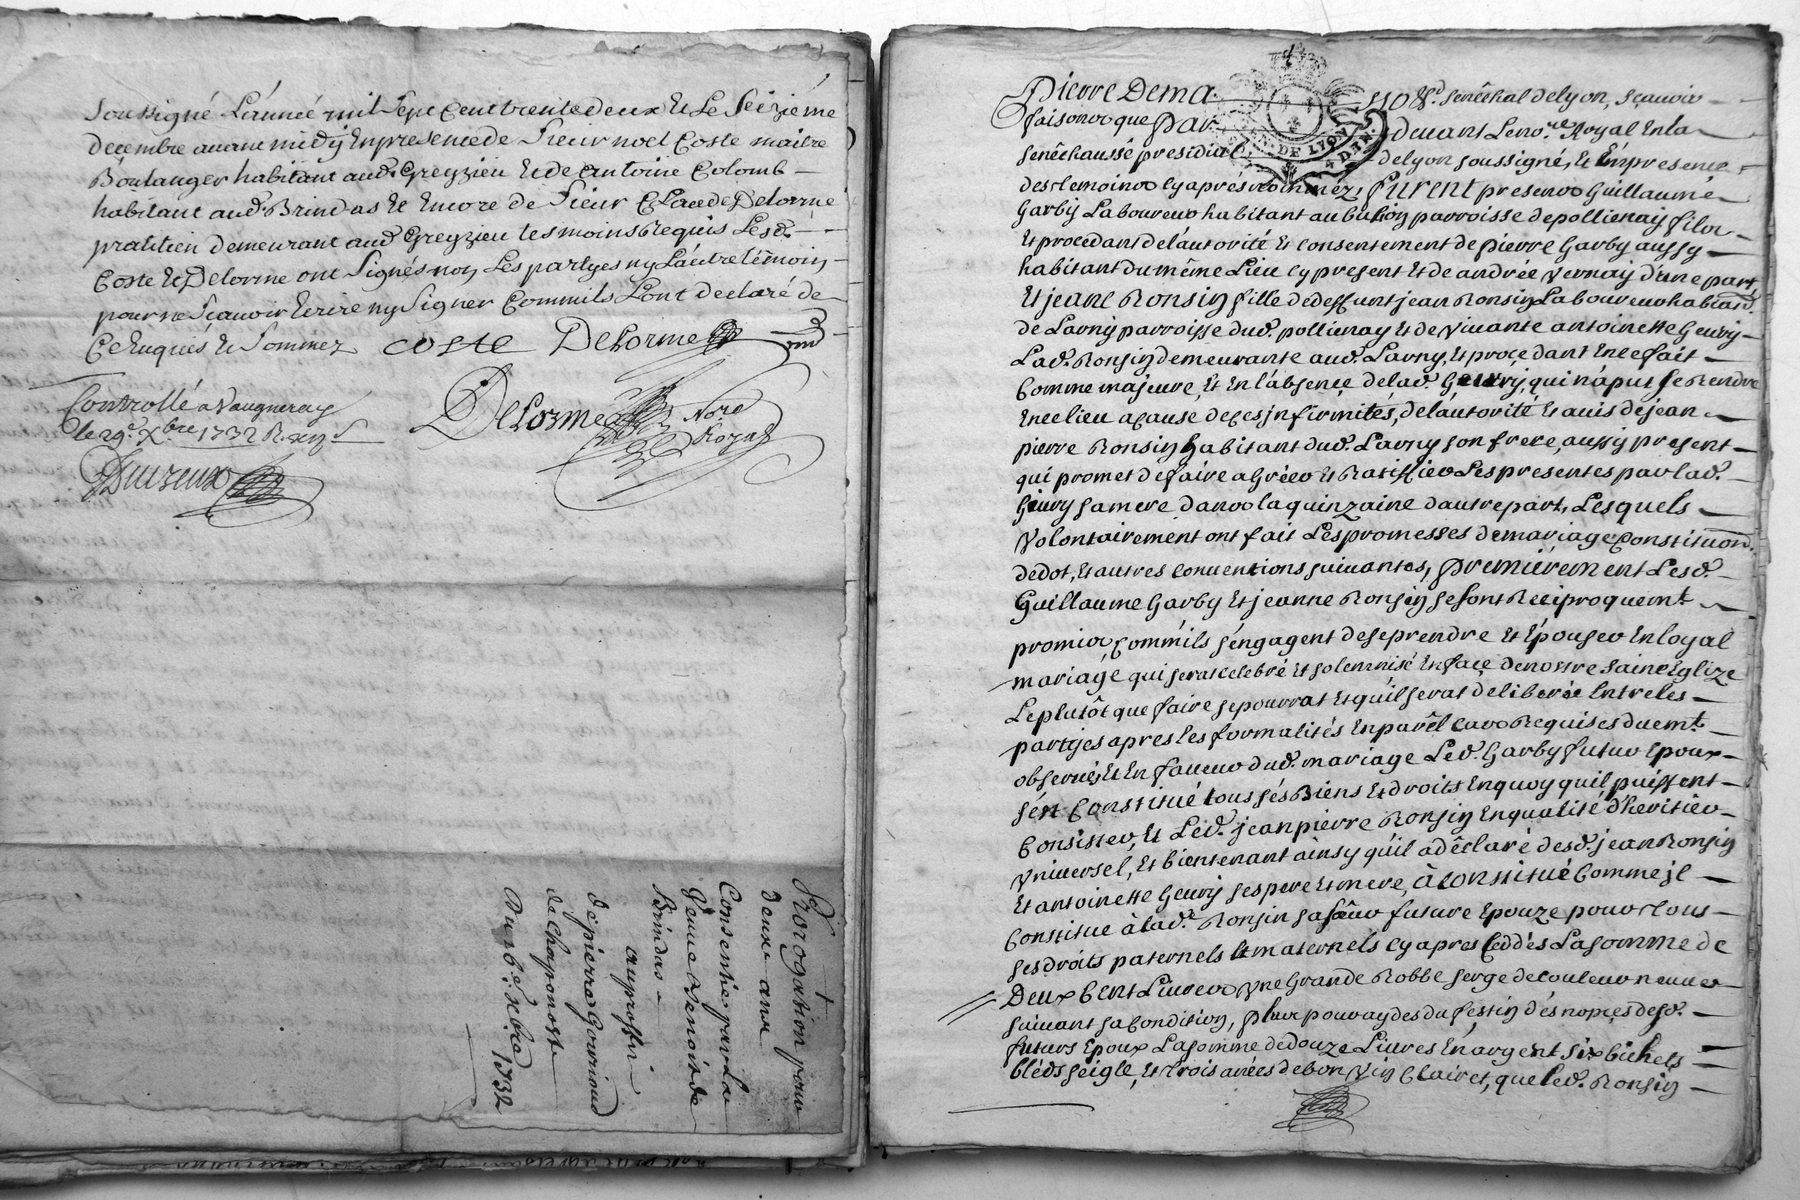 soussigné L'année mil Sept Cent trente deux Et Le Seiziéme
Decembre avant midÿ En presence de Sieur noel Coste maitre
Boulanger habitant aud. Greyzieu Et de Antoine Colomb
habitant aud. Brindas Et Encore de Sieur Claude Delorme
pratitien demeurant aud. Greyzieu tesmoins Requis Lesd.
Coste Et Delorme ont Signés non Les partyes ny L'autre témoin
pour ne Scavoir Ecrire ny Signer Comm'ils L'ont declaré de
Ce Enquis Et Sommez coste Delorme
Controllé a Vaugneray
le 29e Xbre 1732 R.
Delorme Nore
Royal
Prorogation pour
deux ans
Consentie par La
Veuve Benoit de
Brindas
au proffit
de pierre Gourioud
de Chaponost
Du 16e Xbre 1732
Pierre Dema
nor. Senêchal de Lyon, sçavoir
faisons que Par
devant Le no.re Royal En la
senêchaussé presidial
DE LYON
GEN.
de Lyon soussigné, Et En presence
des temoins cy aprés nommez, furent presens Guillaume
Garby Laboureur habitant au buthion parroisse de pollienay fils
Et procedans de l'autorité Et consentement de pierre Garby aussy
habitant du même Lieu cy present Et de andrée Vernay d'une part,
Et jeane Ronsin fille de deffunt jean Ronsin Laboureur habitant
de Larny parroisse dud. pollienay Et de Vivante antoinette Geury
Lad. Ronsin demeurante aud. Larny, Et procedant En ce fait
Comme majeure, Et En l'absence de lad. Geury, qui n'a pu se Rendre
En ce lieu a cause de ces jnfirmités, de l'autorité Et avis de jean
pierre Ronsin habitant dud. Larny son frere, aussy present
qui promet de faire agréer Et Ratiffier Les presentes par lad.
Geury sa mere dans la quinzaine d'autre part, Lesquels
Volontairement ont fait Les promesses de mariage Constituon.
de dot, Et autres conventions suivantes, premiérement Lesd.
Guillaume Garby Et jeanne Ronsin se sont Reciproquemt
promis, Comm'ils s'engagent de se prendre et Épouser En loyal
mariage qui serat celebré Et solemnisé En face de nostre Sainte Eglize
Le plutôt que faire se pourrat Et qu'il serat déliberée Entre les
partyes apres les formalités En parêl cas Requises duemt
observés Et En faveur dud. mariage Led. Garby futur Epoux
s'ést Constitué tous sés Biens Et droits En quoy qu'il puissent
Consister, Et Led. jean pierre Ronsin En qualité d'heritier
Vniversel, Et bientenant ainsy qu'il à déclaré desd. jean Ronsin
Et antoinette Geury ses pere Et mere, à constitué Comme jl
Constitue à lad.e Ronsin sa sœur future Epouze pour tous
ses droits paternels Et maternels cy apres Ceddés La somme de
Deux Cent Livres Vne Grande Robbe serge de couleur neuve
suivant sa condition, Plus pour aydes du festin dés nopces desd.
futurs Epoux La somme de douze Livres En argent six bichets
bléds seigle, Et trois anées de bon Vin Clairet, que Led. Ronsin